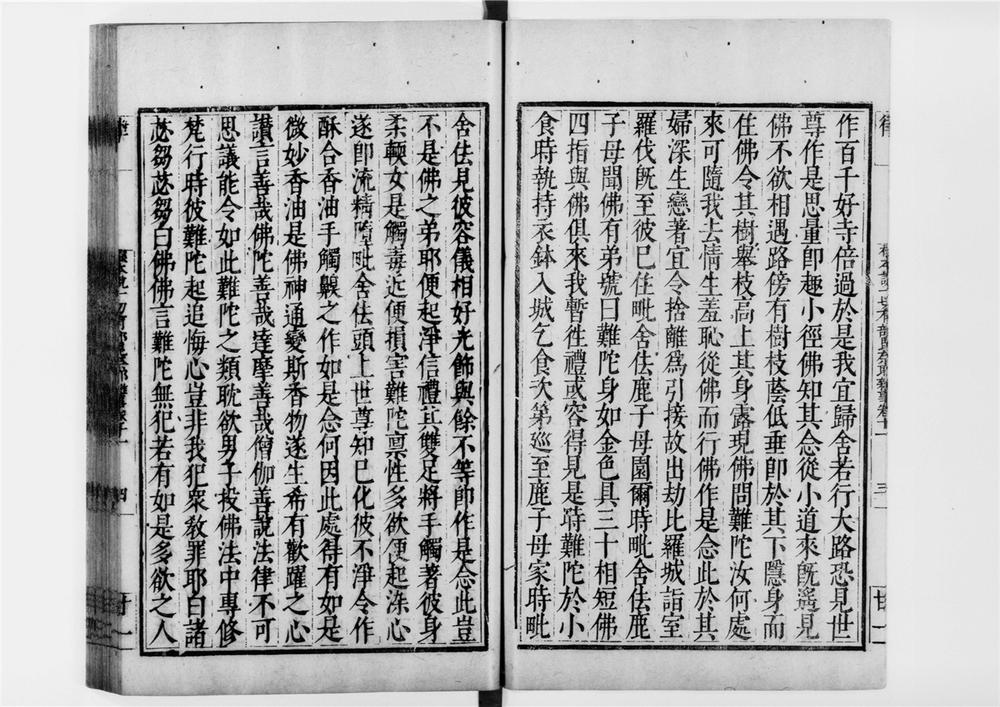 作百千好寺倍過於是我宜歸舍若行大路恐見世
尊作是思量卽趣小徑佛知其念從小道來旣遙見
佛不欲相遇路傍有樹枝蔭低垂卽於其下隱身而
住佛令其樹舉枝高上其身露現佛問難陀汝何處
來可隨我去情生羞恥從佛而行佛作是念此於其
婦深生戀著宜令捨離爲引接故出劫比羅城詣室
羅伐旣至彼已住毗舍佉鹿子母園爾時毗舍佉鹿
子母聞佛有弟號曰難陀身如金色具三十相短佛
四指與佛俱來我暫往禮或容得見是時難陀於小
食時執持衣鉢入城乞食次第巡至鹿子母家時毗
舍佉見彼容儀相好光飾與餘不等卽作是念此豈
不是佛之弟耶便起淨信禮其雙足將手觸著彼身
柔輭女是觸毒近便損害難陀稟性多欲便起染心
遂卽流精墮毗舍佉頭上世尊知已化彼不淨令作
酥合香油手觸齅之作如是念何因此處得有如是
微妙香油是佛神通變斯香物遂生希有歡躍之心
讚言善哉佛陀善哉達摩善哉僧伽善說法律不可
思議能令如此難陀之類耽欲男子投佛法中專修
梵行時彼難陀起追悔心豈非我犯衆敎罪耶白諸
苾芻苾芻白佛佛言難陀無犯若有如是多欲之人